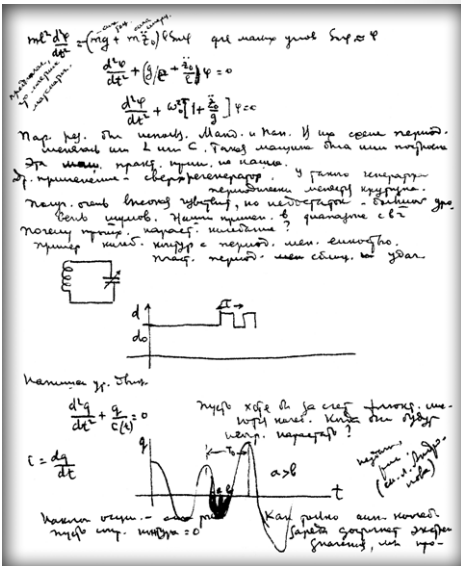 ml² d²φ/dt² = (mg + mz̈₀) l Sinφ для малых углов Sinφ ≈ φ
d²φ/dt² + (g/l + z̈₀/l) φ = 0
d²φ/dt² + ω₀² [1 + z̈₀/g] φ = 0
Пар. рез. был использ. Манд. и Пап. У них схема период.
менялась или L или C. Такая машина была ими построена
Эта маш. практ. прим. не нашла.
Др. применение – сверхрегенератор. У такого генератора
периодически меняют крутизна.
Получ. очень высокая чувствит., но недостаток – большой уро-
вень шумов. Нашли примен. в диапазоне СВЧ
Почему происх. нараст. колебание?
Пример колеб. контур с период. мен. емкостью.
Пласт. период. мен сближ. и удал
d
d₀
τ
Напишем ур. движ.
d²q/dt² + q/C(t) = 0
Пусть хотя бы за счет флюкт. име-
ются колеб. Когда они будут
нарастать?
i = dq/dt
q
τ₀
a>b
t
Пусть =0
Как только колеб.
заряда достигнет экстр
значения, мы про-